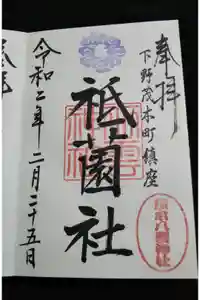 奉拝
下野茂木町鎮座
祇園社
令和二年二月二十五日